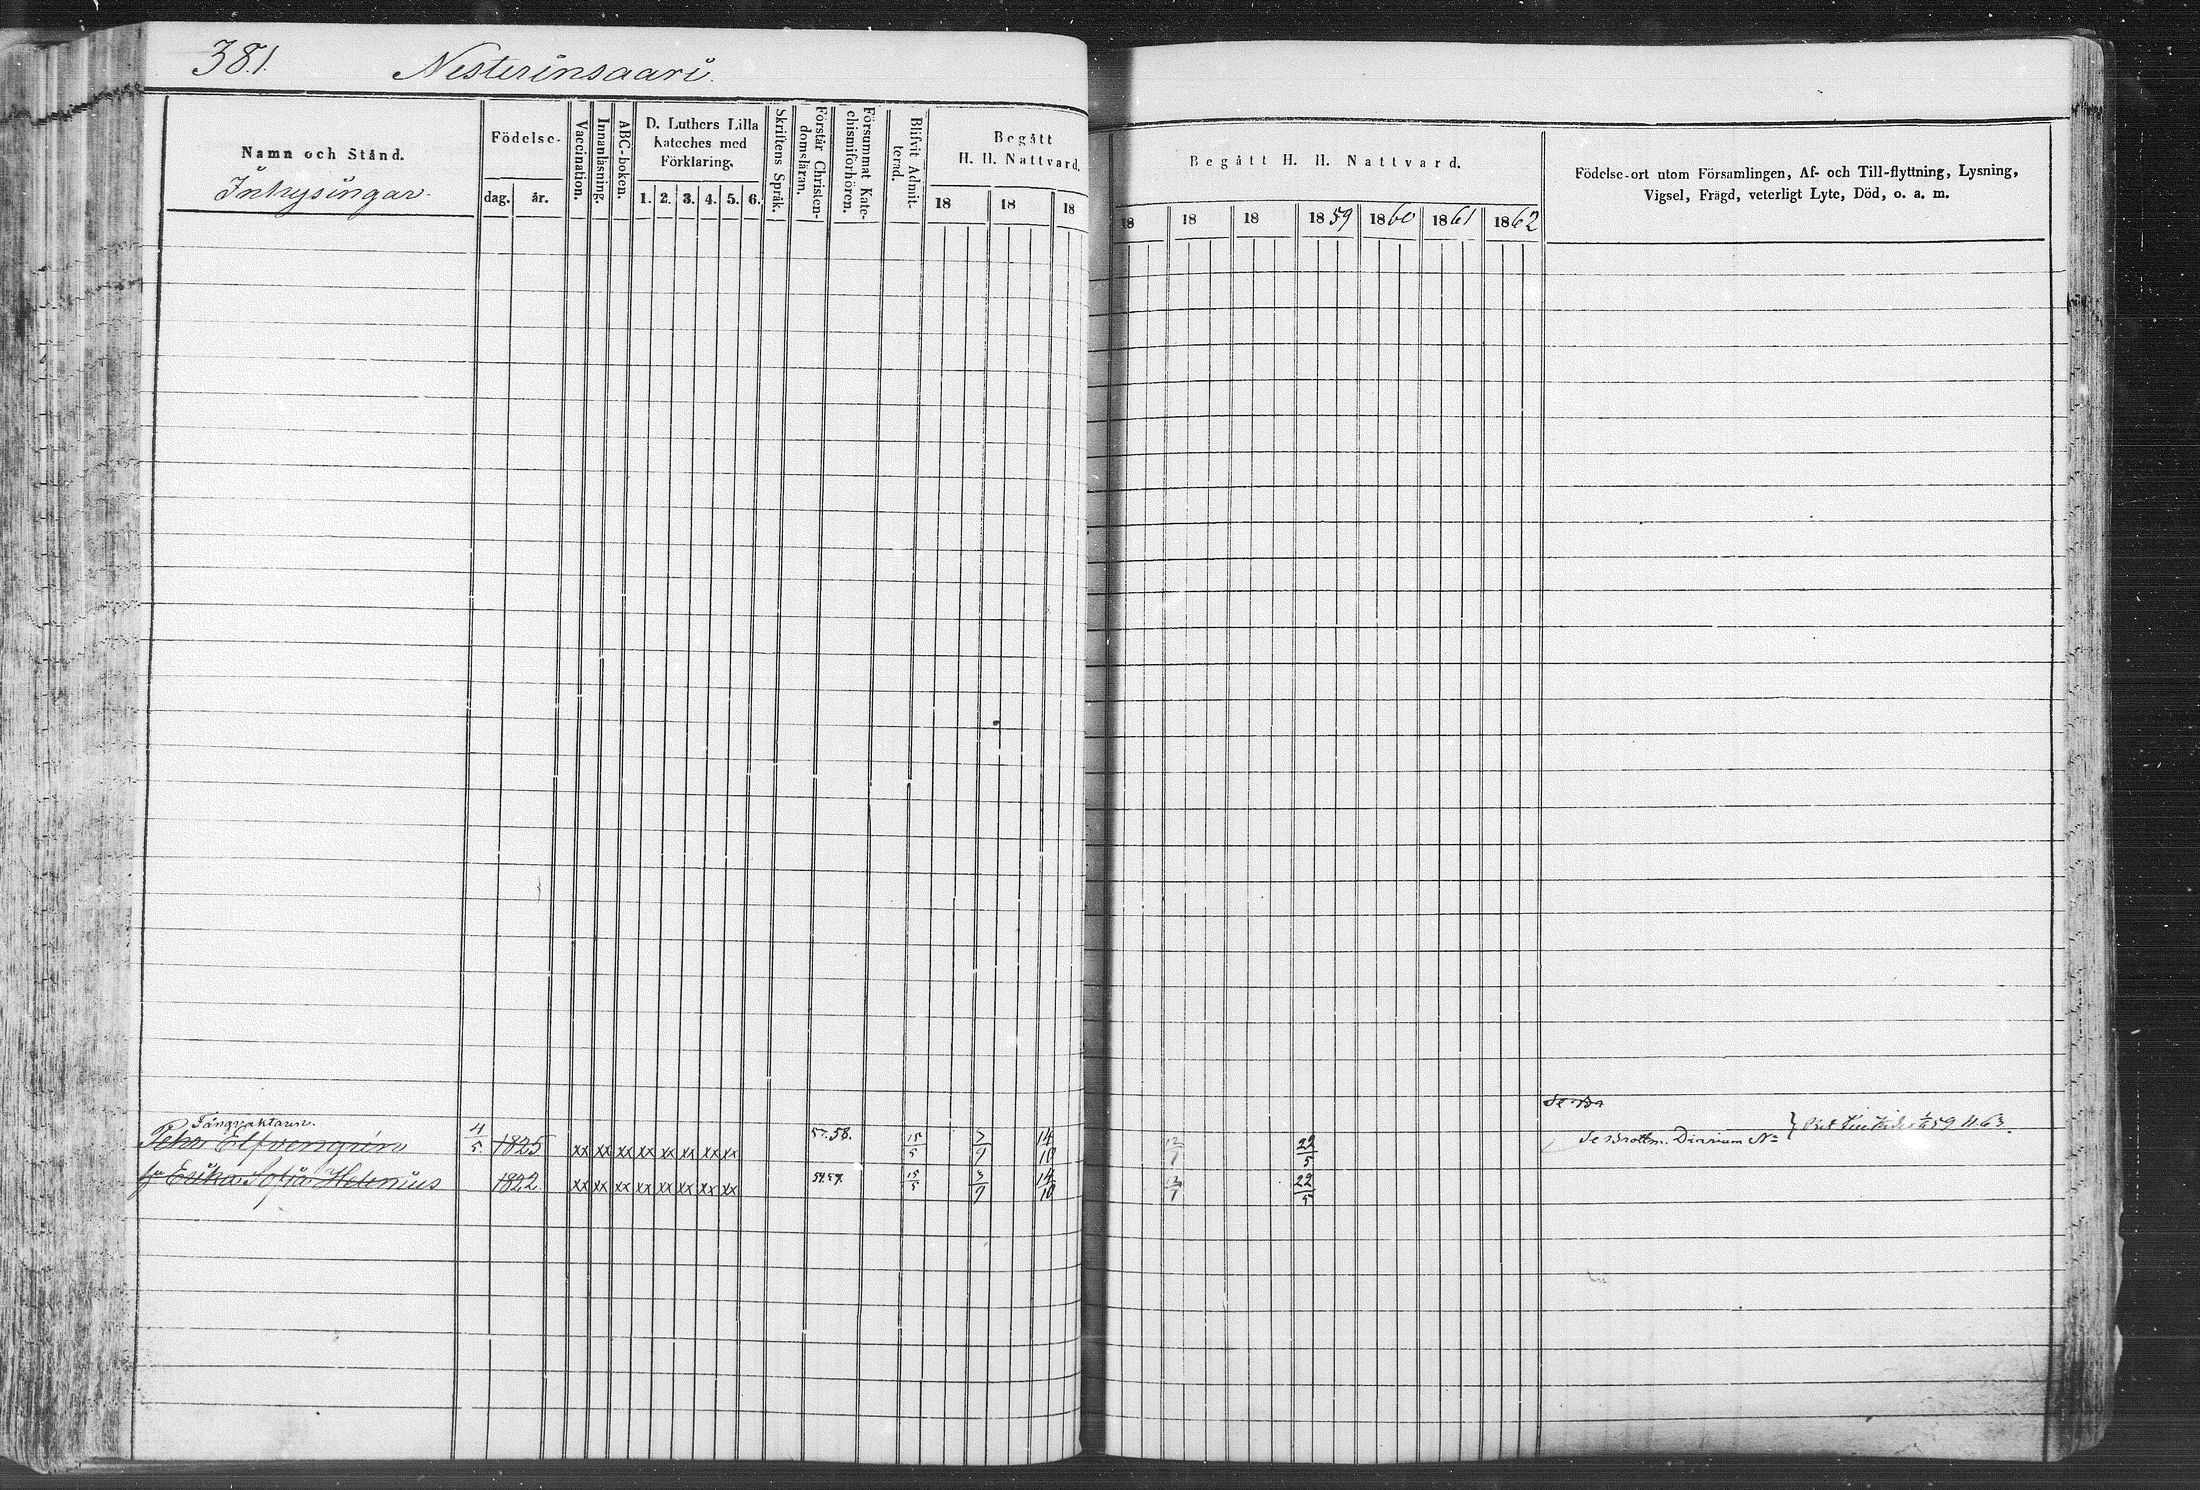 381. Nesterinsaari.
Namn och Stånd.
Inhysingar.
Födelse-
dag. år.
Vaccination.
Innanläsning.
ABC-boken.
D. Luthers Lilla
Kateches med
Förklaring.
1. 2. 3. 4. 5. 6.
Skriftens Språk.
Förstår Christen-
domsläran.
Försummat Kate-
chismiförhören.
Blifvit Admit-
terad.
Begått
H. H. Nattvard.
18 18 18
Begått H. H. Nattvard.
18 18 18 1859 1860 1861 1862
Födelse-ort utom Församlingen, Af- och Till-flyttning, Lysning,
Vigsel, Frägd, veterligt Lyte, Död, o. a. m.
Fångvaktaren.
Pehr Elfvengrén 4/5 1825 xx xx xx xx xx xx xx xx 57.58. 15/5 3/7 14/10 12/7 22/5 Se Brottm. Diarium No 1/4 59 N. 63.
hu Erika Sofia Helenius 1822 xx xx xx xx xx xx xx xx 15/5 3/7 14/10 12/7 22/5